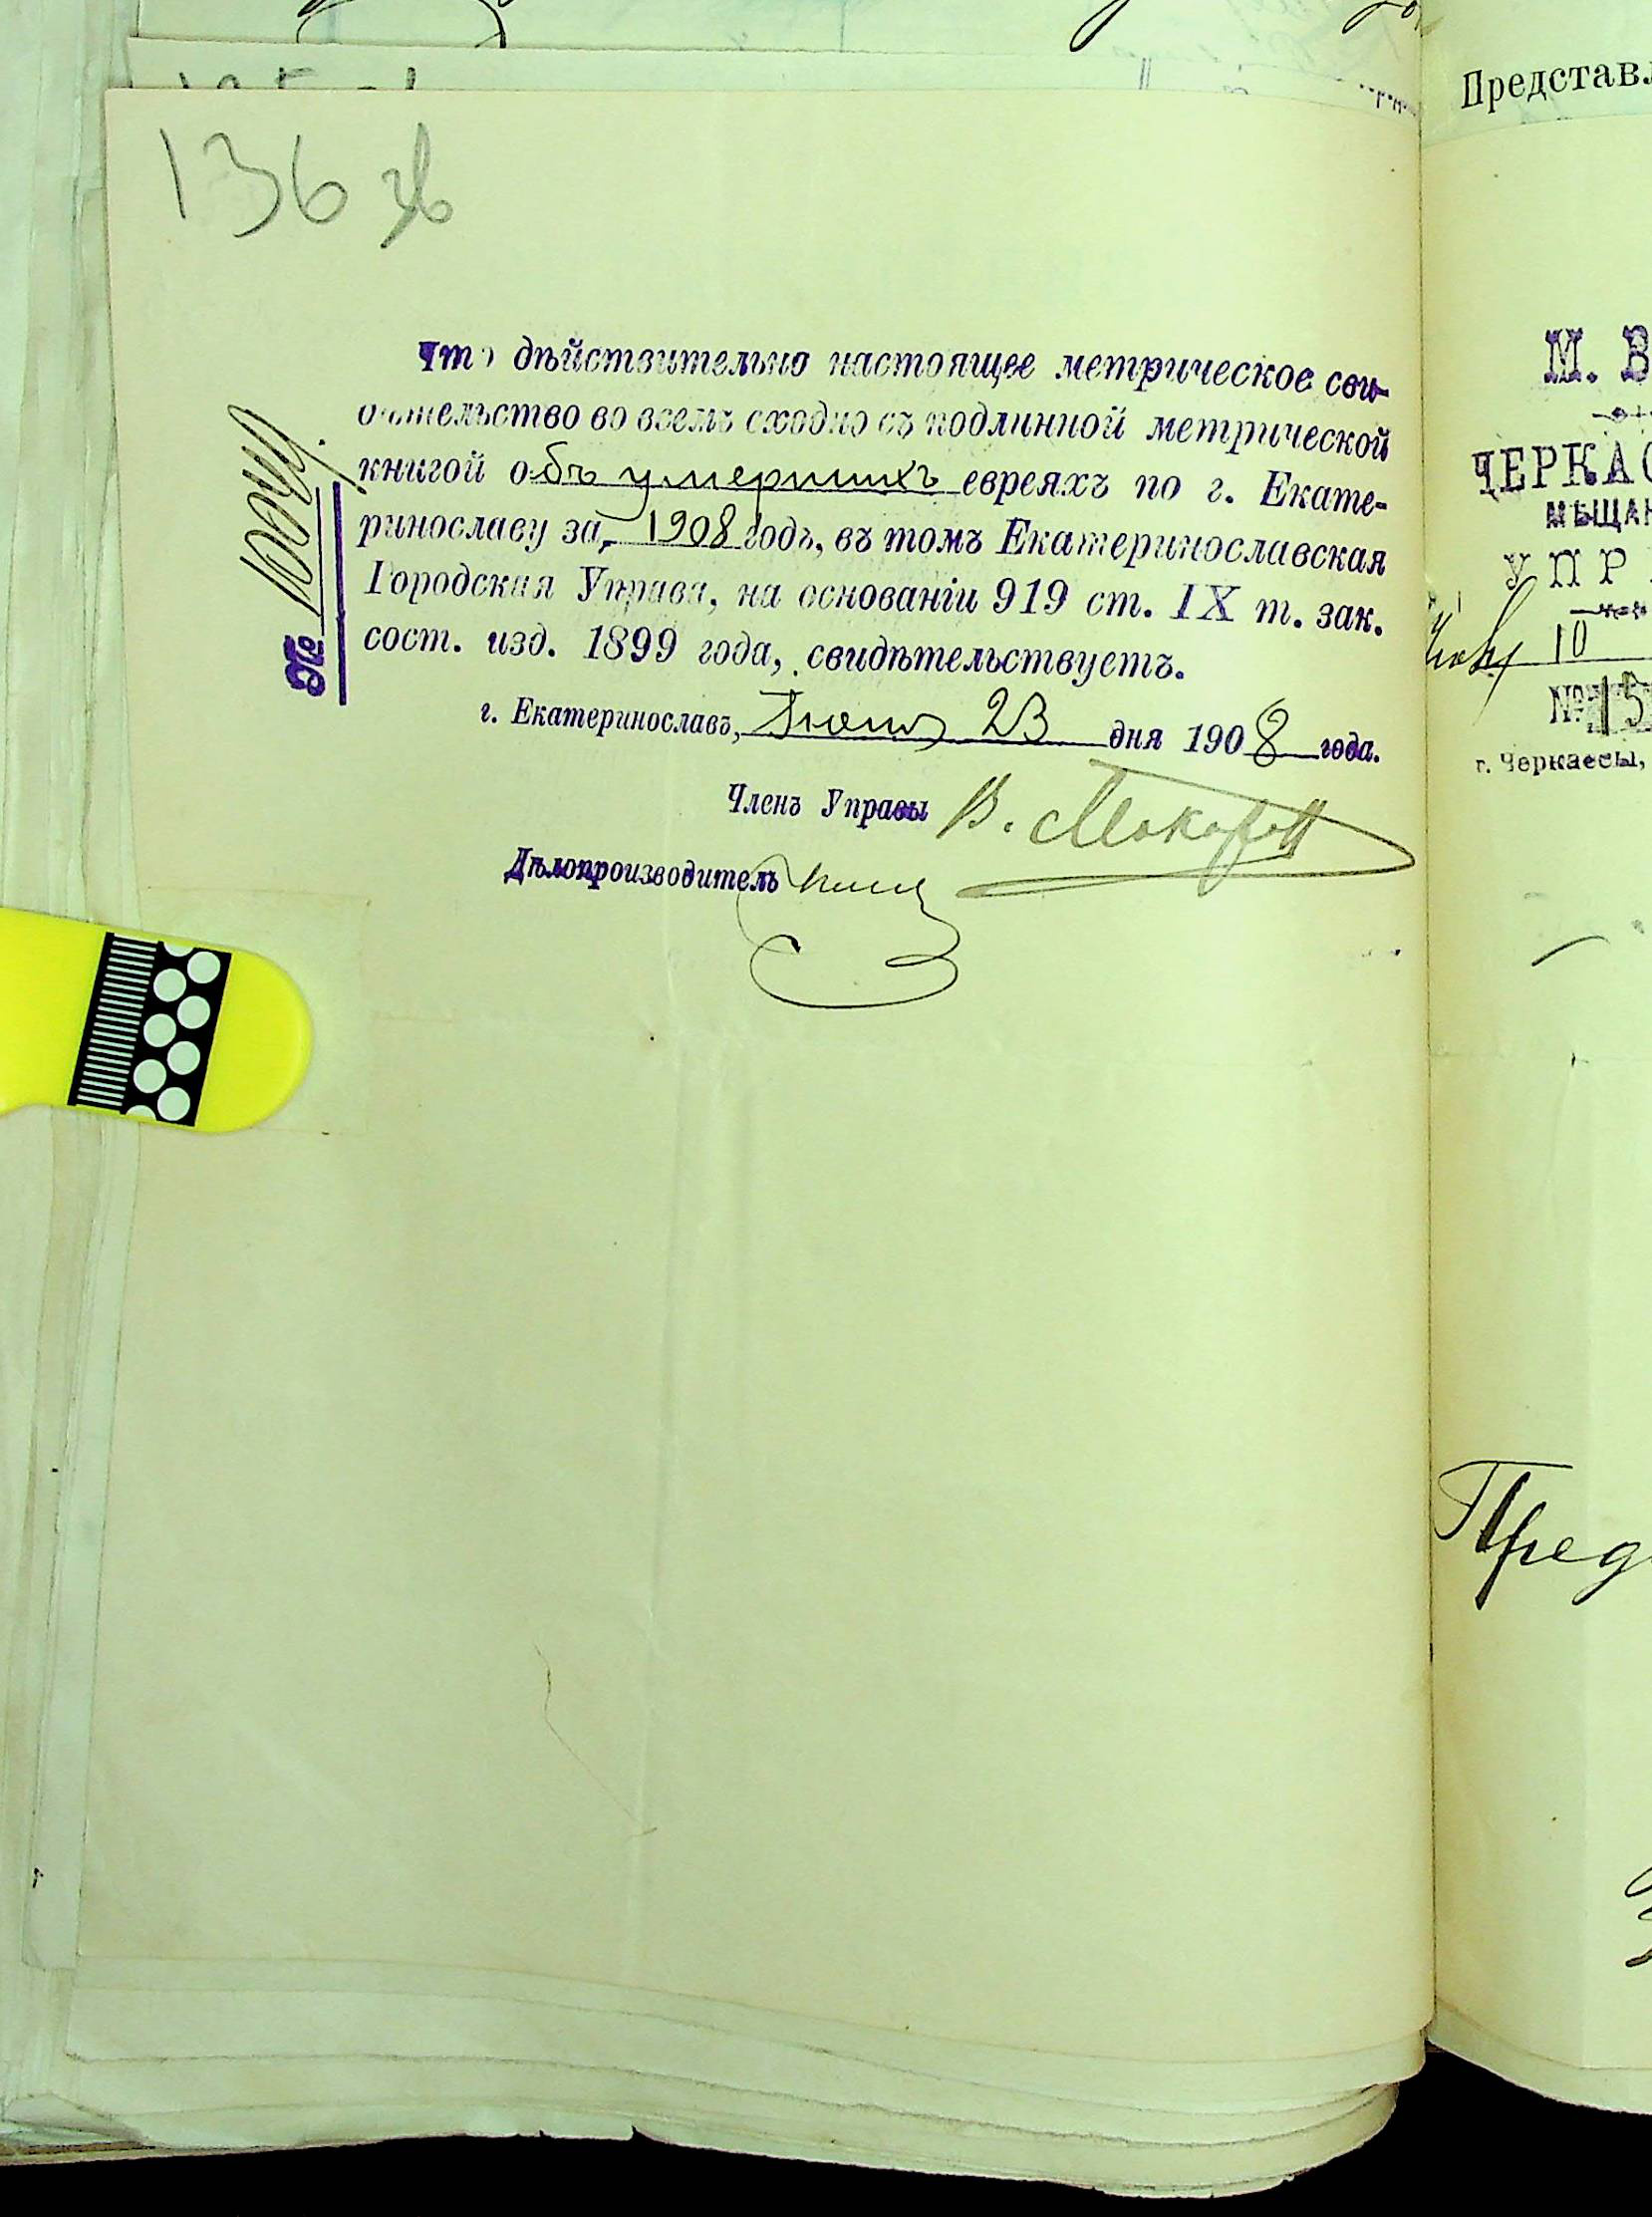 136 зв
Что дѣйствительно настоящее метрическое сви-
дѣтельство во всемъ сходно съ подлинной метрической
книгой объ умершихъ евреяхъ по г. Екате-
ринославу за 1908 годъ, въ томъ Екатеринославская
Городская Управа, на основаніи 919 ст. IX т. зак.
сост. изд. 1899 года, свидѣтельствуетъ.
г. Екатеринославъ, Іюня 23 дня 1908 года.
Членъ Управы В.
Дѣлопроизводитель
№
Представл
М. В
ЧЕРКАС
МѢЩАН
УПР
10
№ 15
г. Черкассы,
Пред